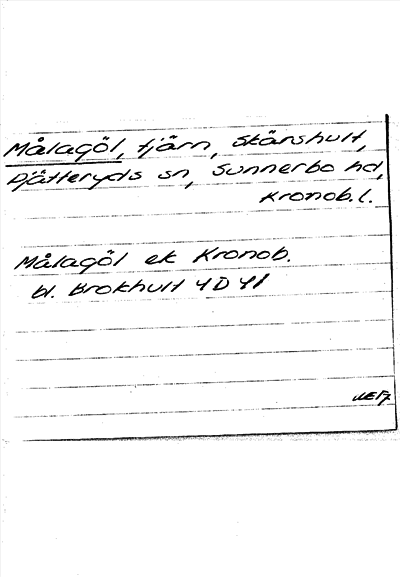 Målagöl, tjärn, Skänshult,
Pjätteryds sn, Sunnerbo hd,
Kronob. l.
Målagöl ek Kronob.
bl. Brokhult 4D 4f